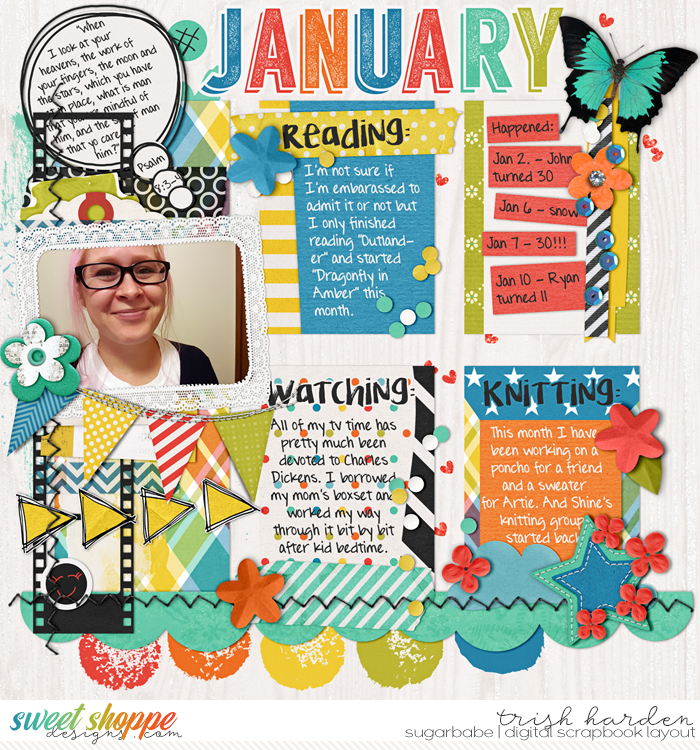 JANUARY
"When
I look at your
heavens, the work of
your fingers, the moon and
the stars, which you have
in place, what is man
that you are mindful of
him, and the son of man
that yo care
him?"
Psalm
8:3-4
#
Reading:
I'm not sure if
I'm embarassed to
admit it or not but
I only finished
reading "Outland-
er" and started
"Dragonfly in
Amber" this
month.
Happened:
Jan 2. - John
turned 30
Jan 6 - snow
Jan 7 - 30!!!
Jan 10 - Ryan
turned 11
Watching:
All of my tv time has
pretty much been
devoted to Charles
Dickens. I borrowed
my mom's boxset and
worked my way
through it bit by bit
after kid bedtime.
Knitting:
This month I have
been working on a
poncho for a friend
and a sweater
for Artie. And Shine's
knitting group
started back
sweet shoppe
designs.com
trish harden
sugarbabe | digital scrapbook layout